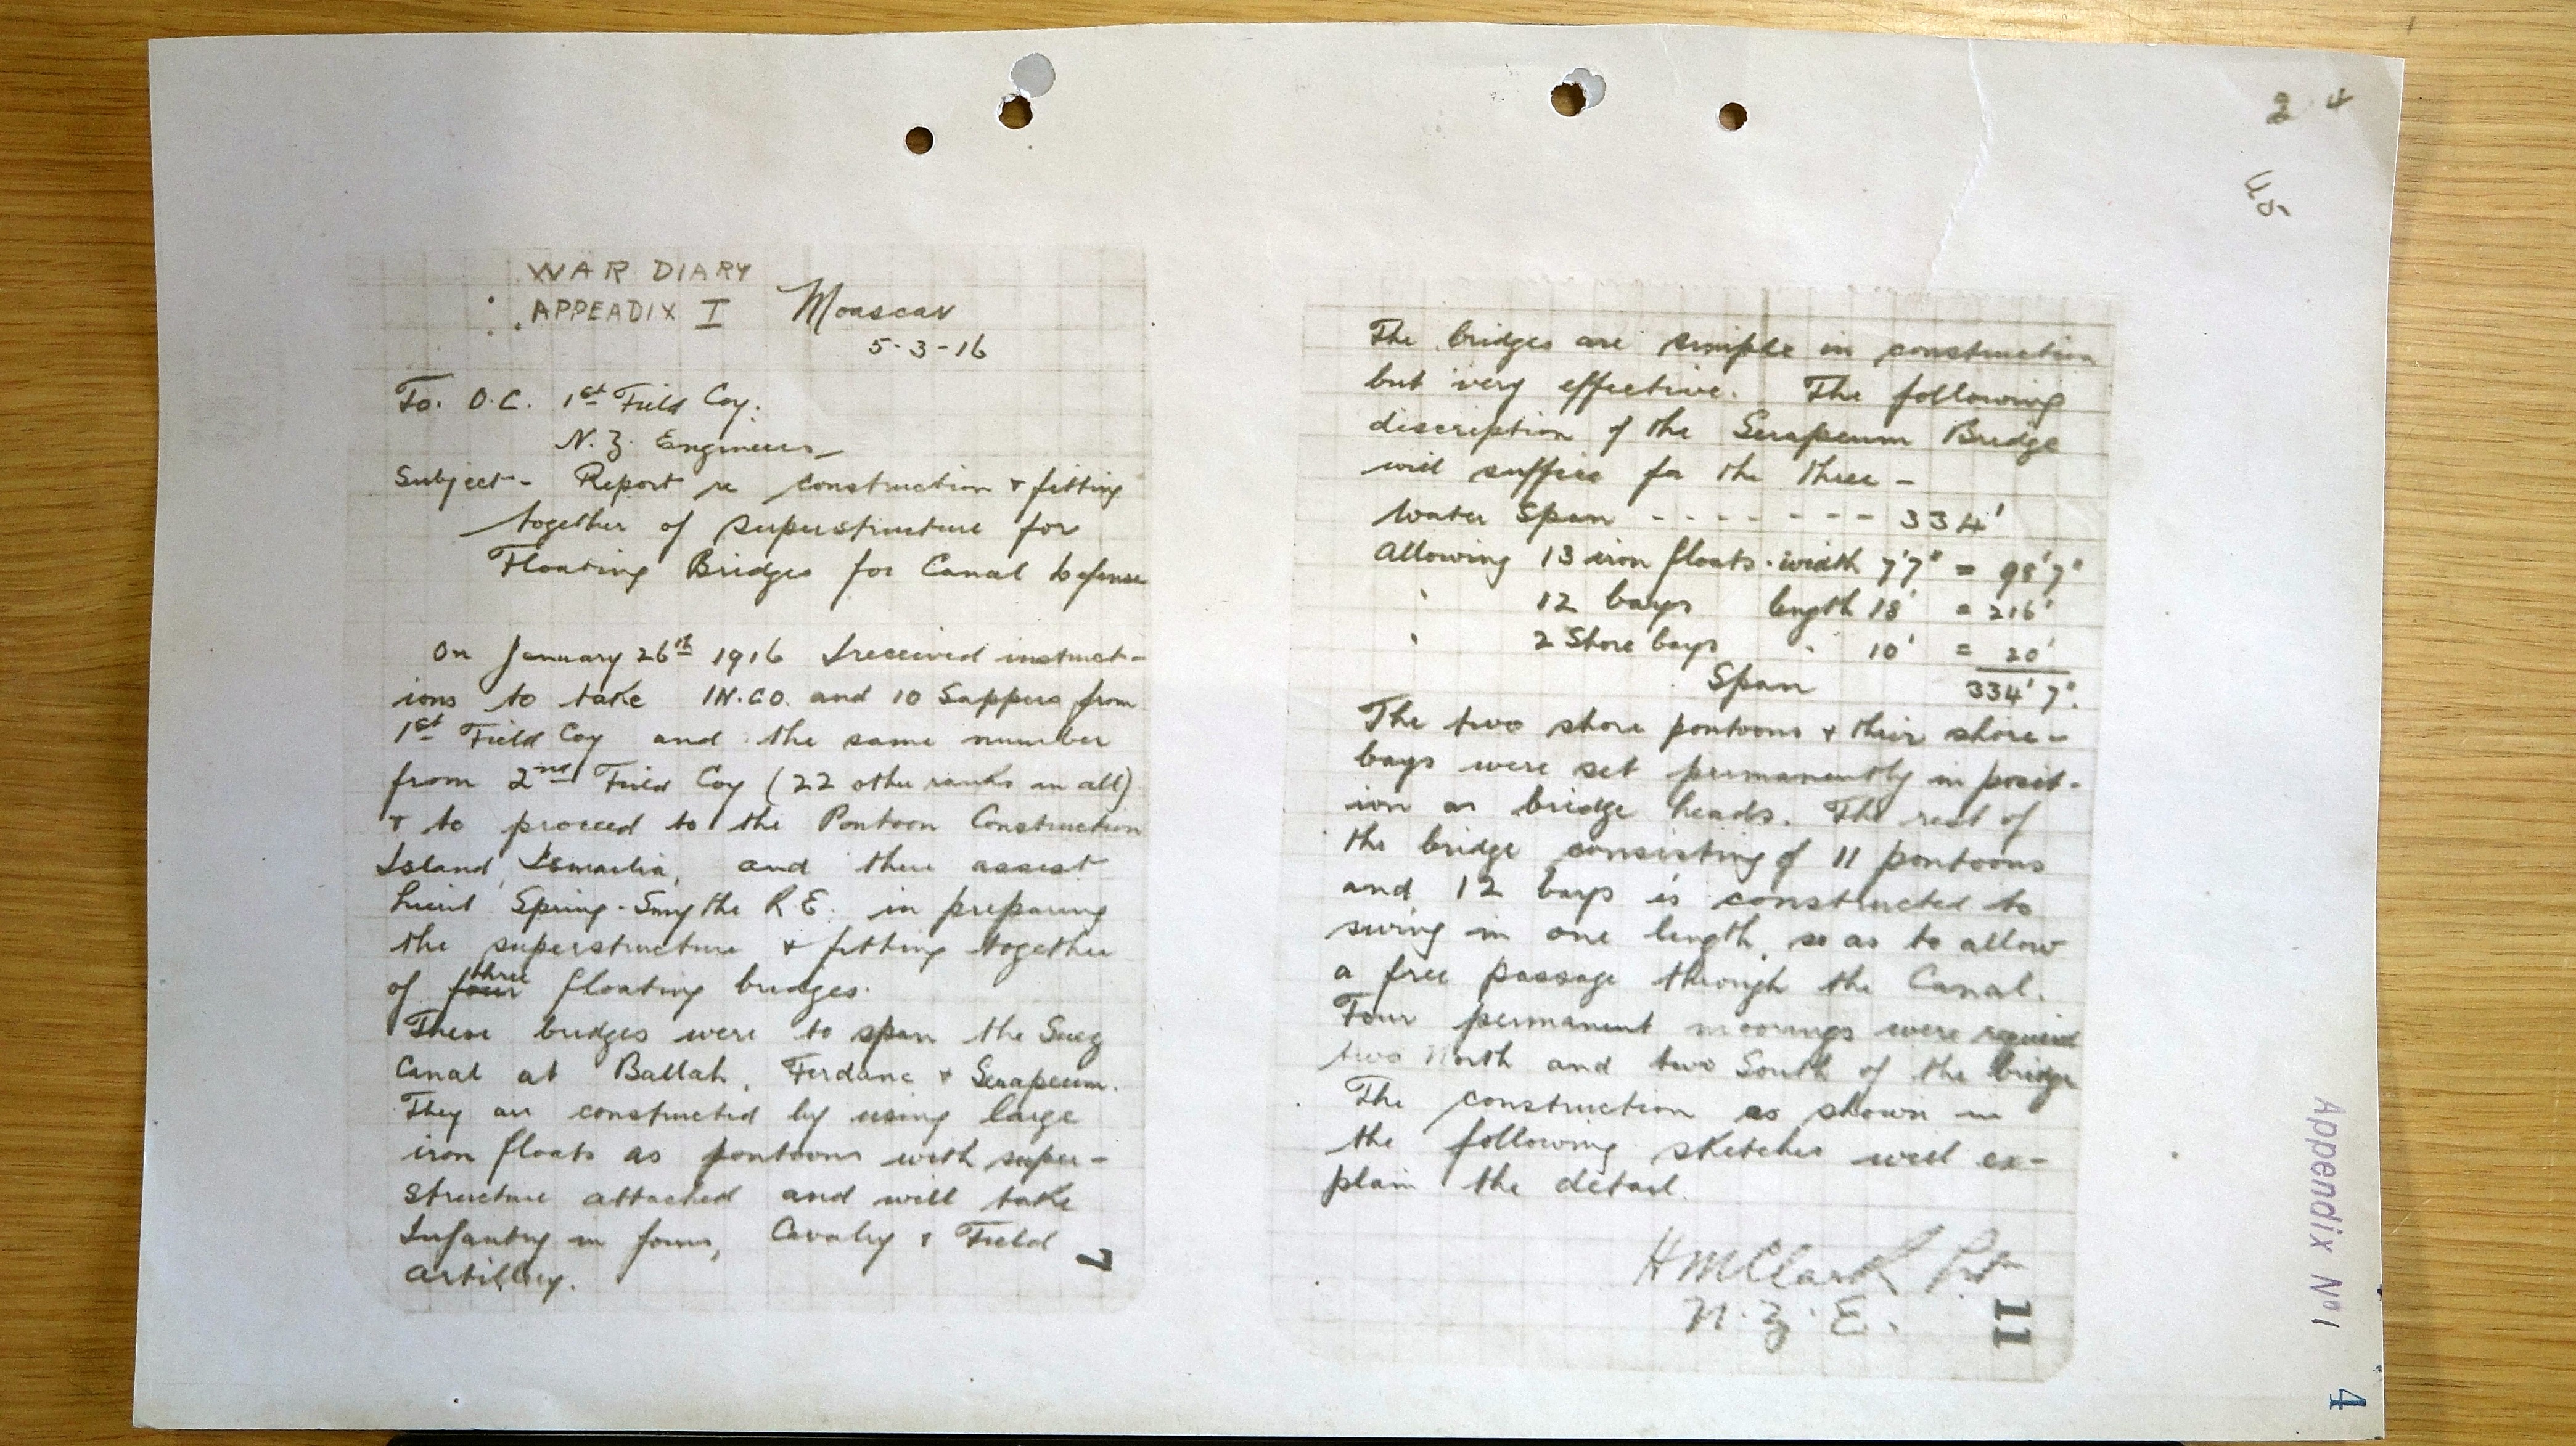 WAR DIARY
APPEADIX I Moascar
5-3-16
To. O.C. 1st Field Coy.
N.Z. Engineers
Subject - Report re construction + fitting
together of superstructure for
Floating Bridges for Canal Defence
On January 26th 1916 I received instruct-
ions to take 1 N.C.O. and 10 Sappers from
1st Field Coy and the same number
from 2nd Field Coy (22 other ranks in all)
+ to proceed to the Pontoon Construction
Island, Ismailia, and there assist
Lieut Spring-Smythe R.E. in preparing
the superstructure + fitting together
of four three floating bridges.
These bridges were to span the Suez
Canal at Ballah, Ferdane + Serapeum.
They are constructed by using large
iron floats as pontoons with super-
structure attached and will take
Infantry in fours, Cavalry + Field
Artillery.
7
The bridges are simple in construction
but very effective. The following
discription of the Serapeum Bridge
will suffice for the three -
Water Span - - - - - - - 334'
Allowing 13 iron floats. width 7'7" = 98'7"
" 12 bays length 18' = 216'
" 2 Shore bays " 10' = 20'
Span 334' 7".
The two shore pontoons + their shore-
bays were set permanently in posit-
ion as bridge heads. The rest of
the bridge consisting of 11 pontoons
and 12 bays is constructed to
swing in one length, so as to allow
a free passage through the Canal.
Four permanent moorings were required
two North and two South of the bridge
The construction as shown in
the following sketches will ex-
plain the detail.
H M Clark
N.Z.E.
11
2 4
Appendix No 1
4